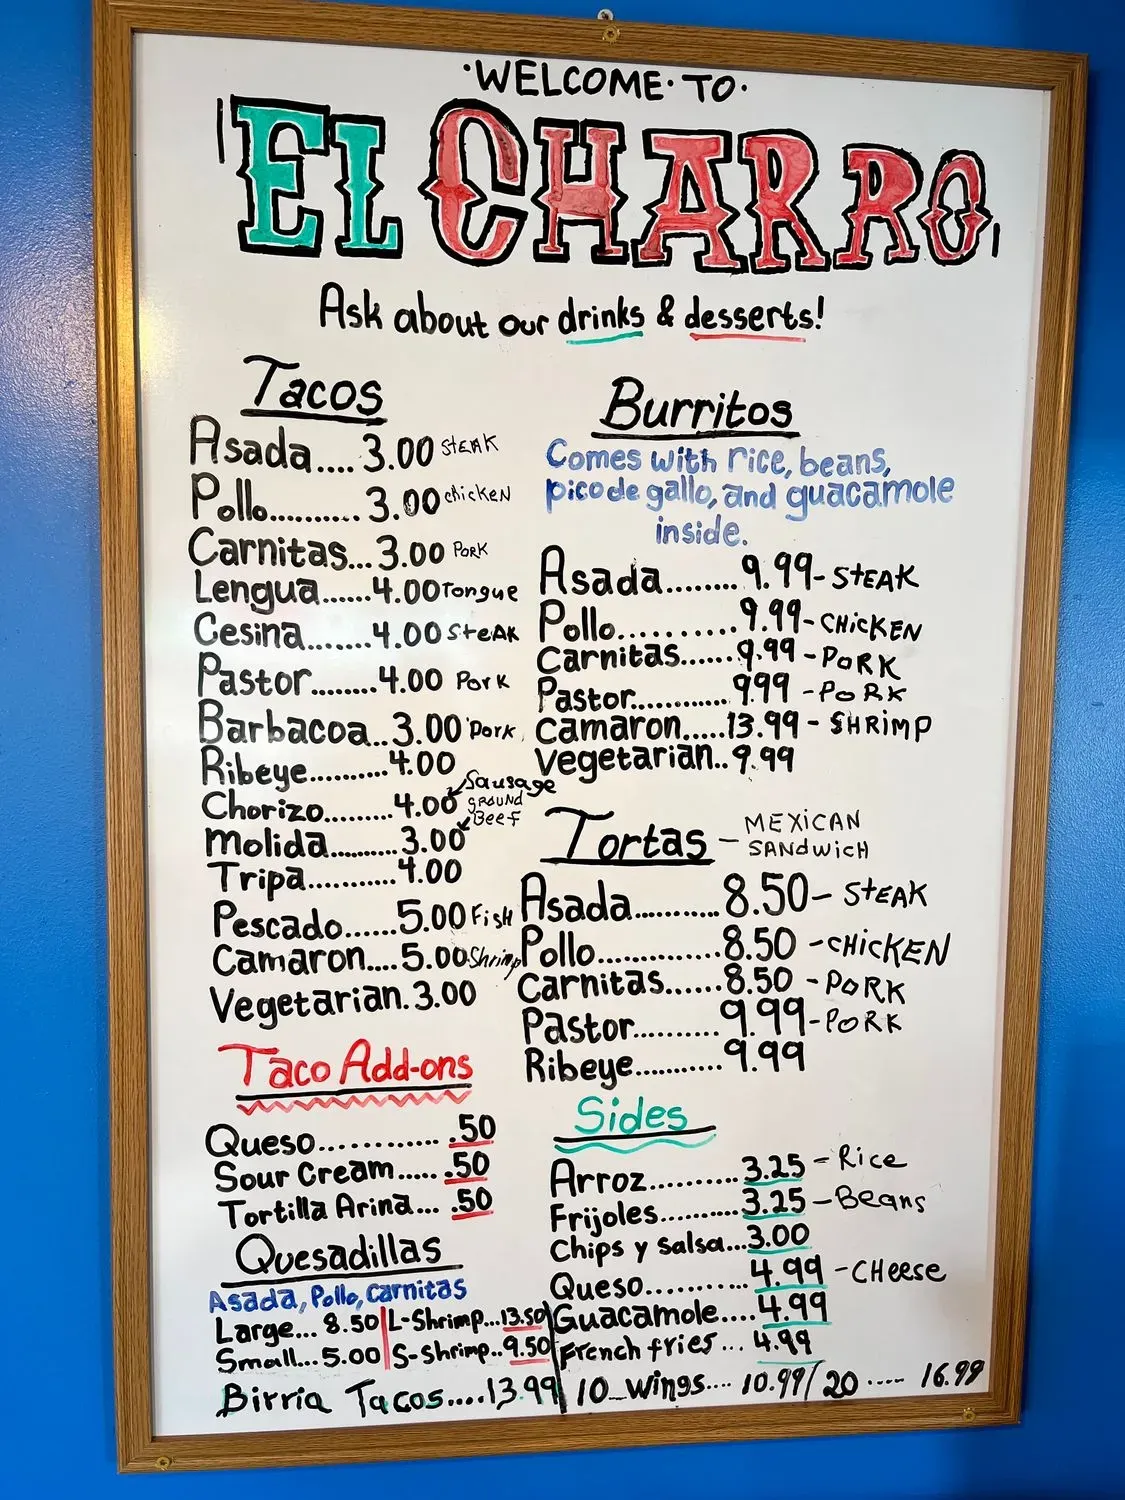 ·WELCOME·TO·
EL CHARRO
Ask about our drinks & desserts!
Tacos
Asada....3.00 STEAK
Pollo..........3.00 chicken
Carnitas...3.00 PORK
Lengua......4.00 Tongue
Cesina.......4.00 SteAK
Pastor........4.00 Pork
Barbacoa..3.00 Pork
Ribeye..........4.00
Chorizo.........4.00 Sausage
Molida..........3.00 GROUND Beef
Tripa...........4.00
Pescado......5.00 Fish
Camaron....5.00 Shrimp
Vegetarian.3.00
Taco Add-ons
Queso............ .50
Sour Cream..... .50
Tortilla Arina... .50
Quesadillas
Asada, Pollo, Carnitas
Large... 8.50 L-Shrimp...13.50
Small...5.00 S-Shrimp..9.50
Birria Tacos....13.99
Burritos
Comes with rice, beans,
pico de gallo, and guacamole
inside.
Asada........9.99-STEAK
Pollo..........9.99-CHICKEN
Carnitas......9.99-PORK
Pastor............999-PORK
Camaron.....13.99-SHRIMP
Vegetarian..9.99
Tortas - MEXICAN
SANDWICH
Asada..........8.50-STEAK
Pollo..............8.50-CHICKEN
Carnitas......8.50-PORK
Pastor.........9.99-PORK
Ribeye...........9.99
Sides
Arroz..........3.25-Rice
Frijoles..........3.25-Beans
Chips y salsa...3.00
Queso.........4.99-CHeese
Guacamole....4.99
French fries...4.99
10 Wings....10.99/20.....16.99